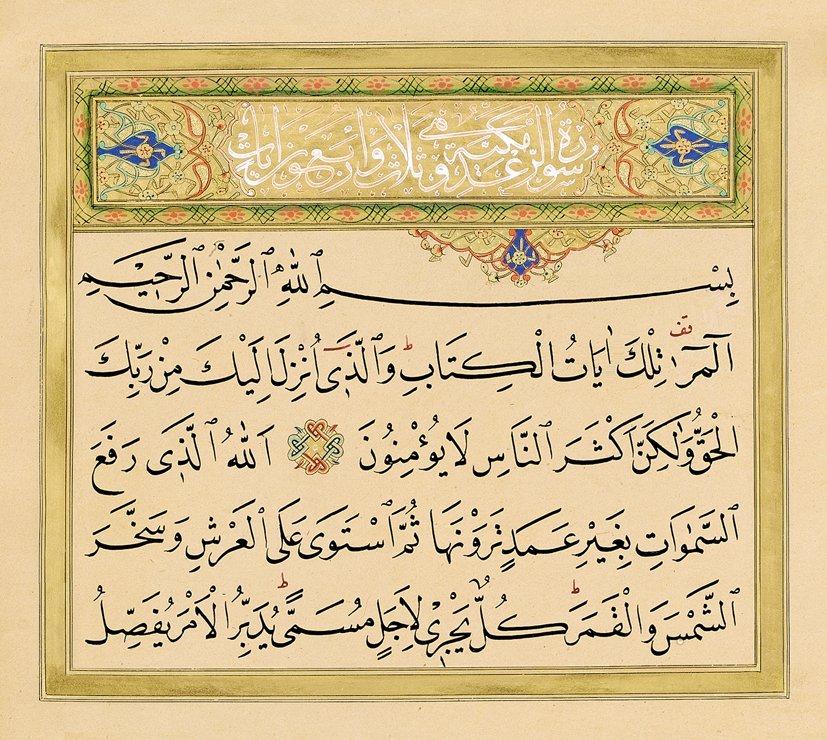 سورة الرعد مكية وهى ثلاث واربعون ايات
بِسْمِ اللّٰهِ الرَّحْمٰنِ الرَّحٖيمِ
الٓمٓرٰ تِلْكَ اٰيَاتُ الْكِتَابِ ط وَالَّذٖٓى اُنْزِلَ اِلَيْكَ مِنْ رَبِّكَ
الْحَقُّ وَلٰكِنَّ اَكْثَرَ النَّاسِ لَا يُؤْمِنُونَ اَللّٰهُ الَّذٖى رَفَعَ
السَّمٰوَاتِ بِغَيْرِ عَمَدٍ تَرَوْنَهَا ثُمَّ اسْتَوٰى عَلَى الْعَرْشِ وَسَخَّرَ
الشَّمْسَ وَالْقَمَرَ ط كُلٌّ يَجْرٖى لِاَجَلٍ مُسَمًّى ط يُدَبِّرُ الْاَمْرَ يُفَصِّلُ